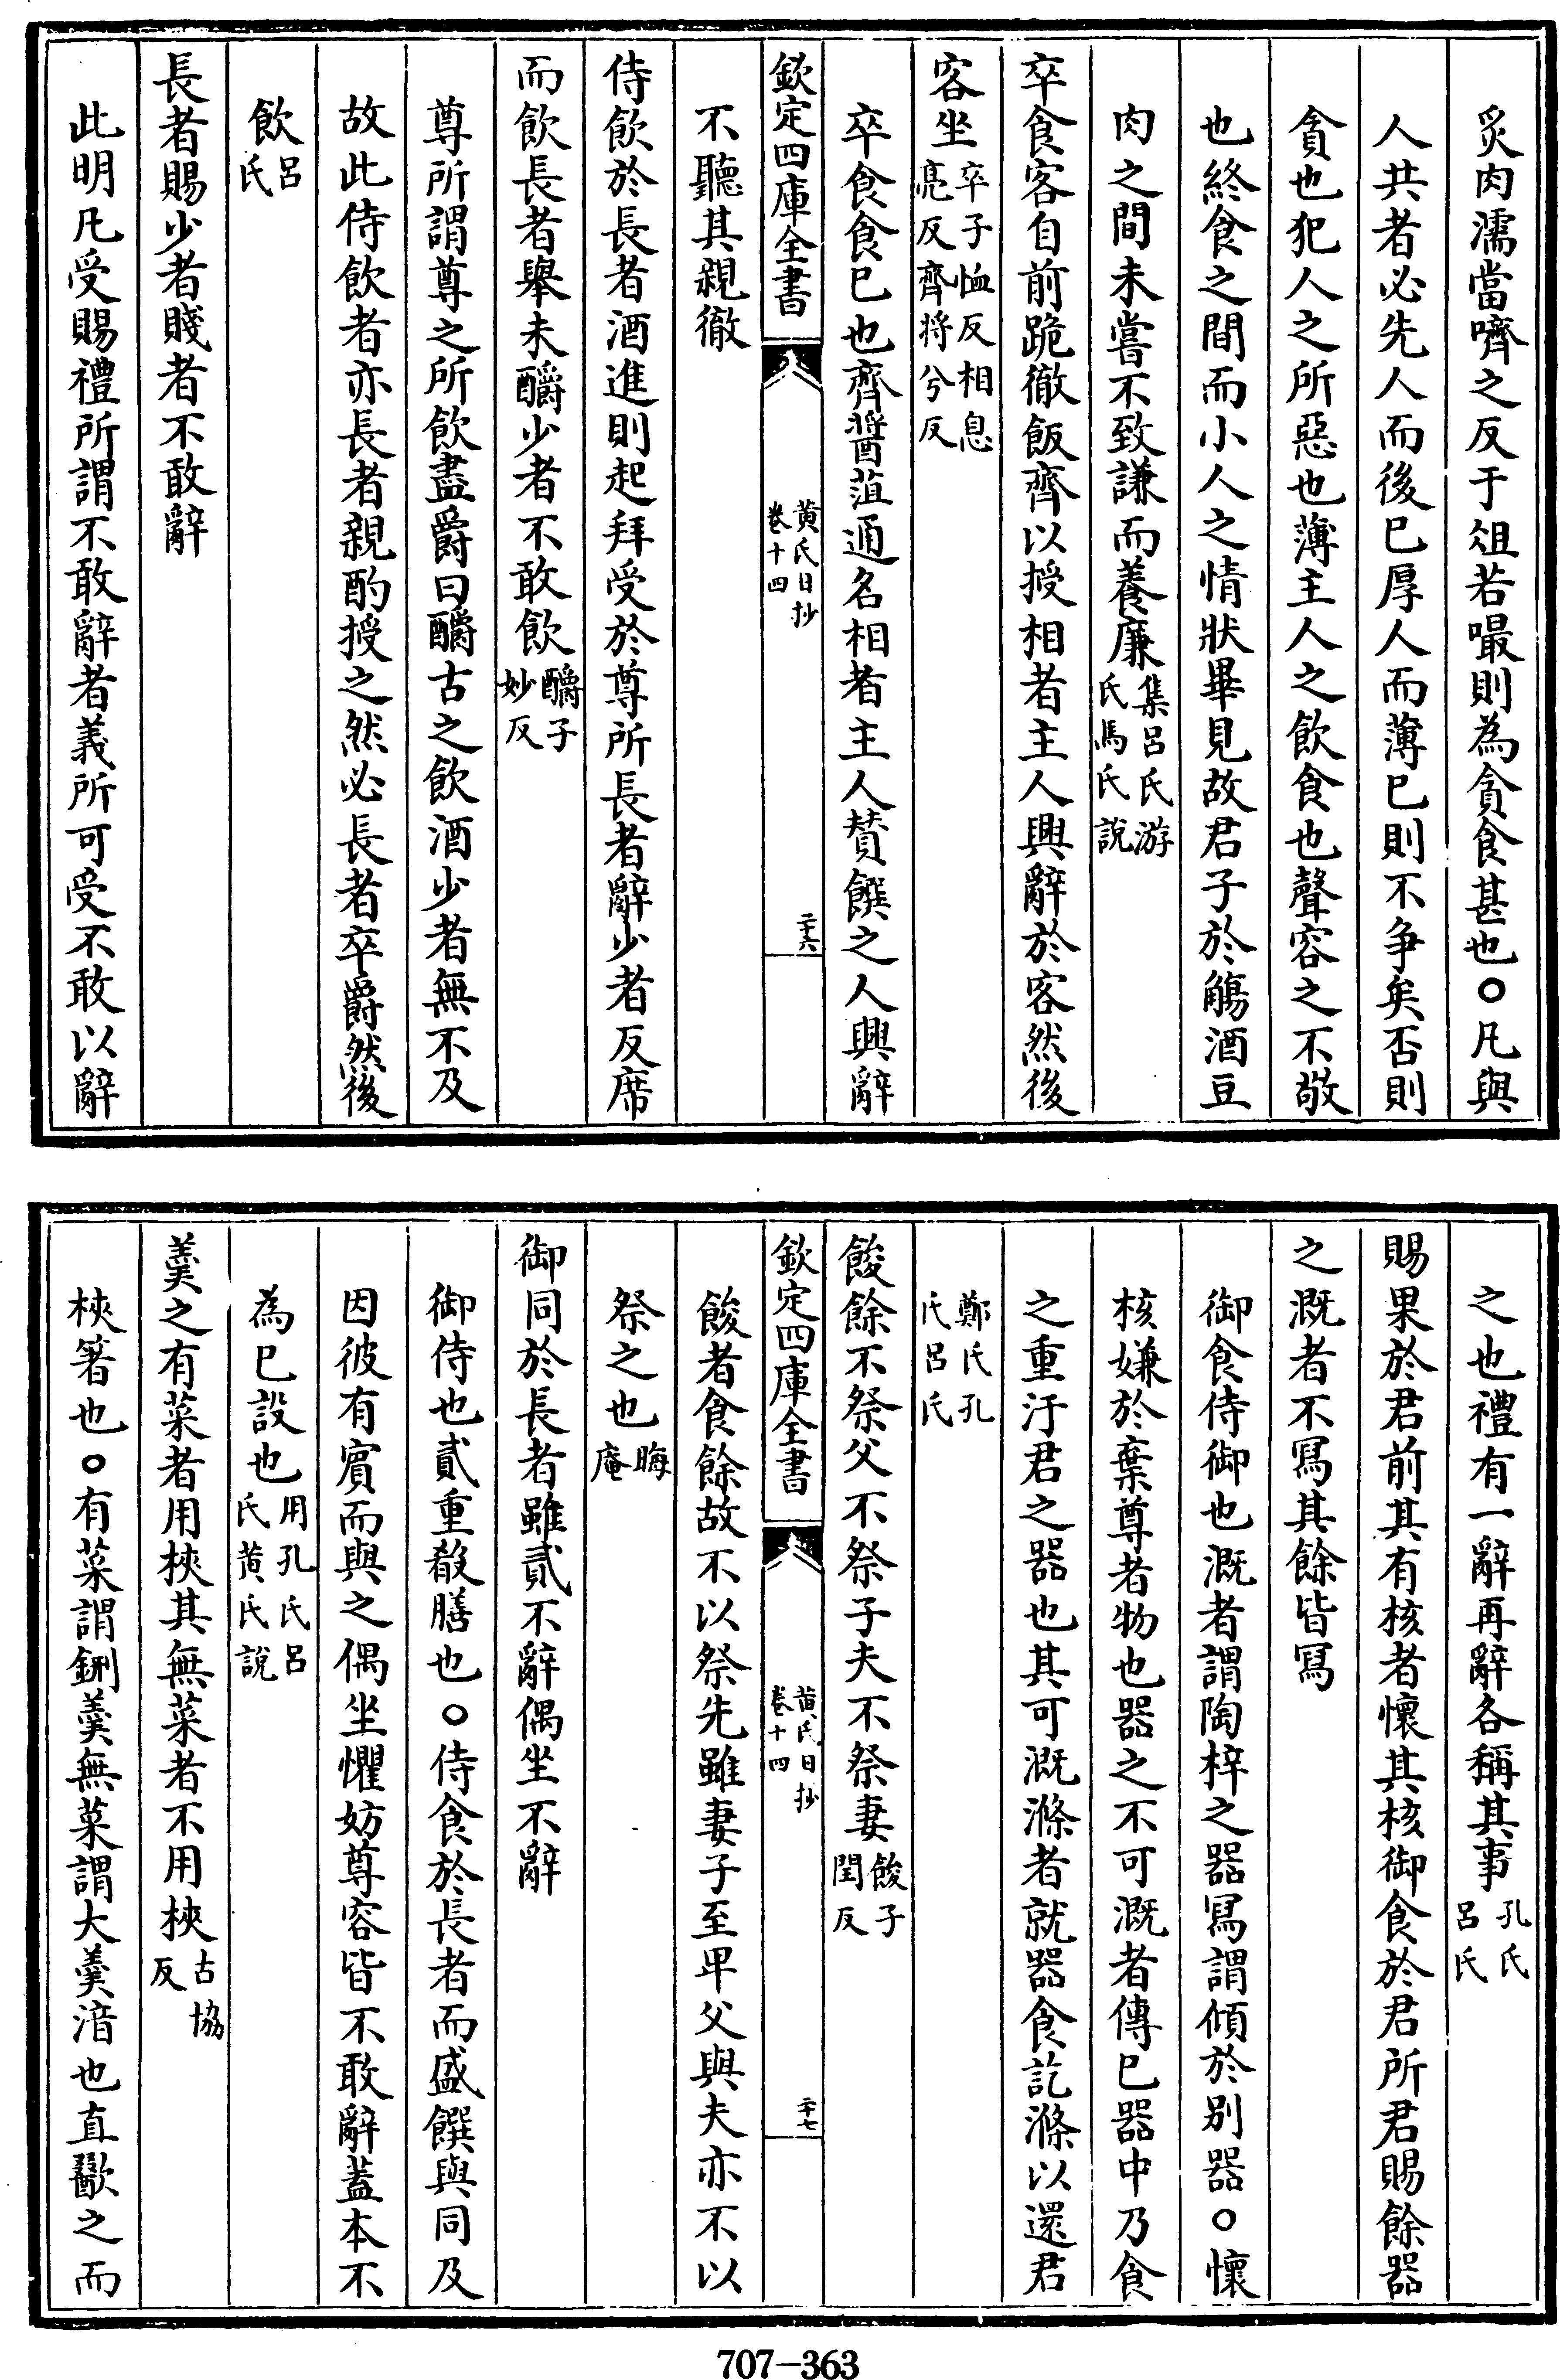 炙肉濡當嚌之反于俎若嘬則為貪食甚也○凡與
人共者必先人而後已厚人而薄已則不爭矣否則
貪也犯人之所惡也薄主人之飲食也聲容之不敬
也終食之間而小人之情狀畢見故君子於觴酒豆
肉之間未嘗不致謙而養廉集呂氏游氏馬氏說
卒食客自前跪徹飯齊以授相者主人興辭於客然後
客坐卒子恤反相息亮反齊將兮反
卒食食已也齊醬菹通名相者主人贊饌之人興辭
欽定四庫全書 黃氏日抄卷十四 二十六
不聽其親徹
侍飲於長者酒進則起拜受於尊所長者辭少者反席
而飲長者舉未釂少者不敢飲釂子妙反
尊所謂尊之所飲盡爵曰釂古之飲酒少者無不及
故此侍飲者亦長者親酌授之然必長者卒爵然後
飲呂氏
長者賜少者賤者不敢辭
此明凡受賜禮所謂不敢辭者義所可受不敢以辭
之也禮有一辭再辭各稱其事孔氏呂氏
賜果於君前其有核者懷其核御食於君所君賜餘器
之溉者不冩其餘皆冩
御食侍御也溉者謂陶梓之器冩謂傾於別器○懷
核嫌於棄尊者物也器之不可溉者傳已器中乃食
之重汙君之器也其可溉滌者就器食訖滌以還君
鄭氏孔氏呂氏
餕餘不祭父不祭子夫不祭妻餕子閏反
欽定四庫全書 黃氏日抄卷十四 二十七
餕者食餘故不以祭先雖妻子至卑父與夫亦不以
祭之也晦庵
御同於長者雖貳不辭偶坐不辭
御侍也貳重殽膳也○侍食於長者而盛饌與同及
因彼有賓而與之偶坐懼妨尊容皆不敢辭蓋本不
為已設也用孔氏呂氏黃氏說
羮之有菜者用梜其無菜者不用梜古協反
梜箸也○有菜謂鉶羮無菜謂大羮湆也直歠之而
707—363